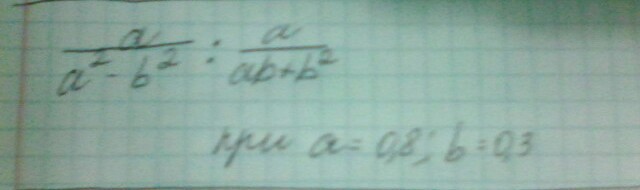 a/(a² - b²) : a/(ab+b²)
при a = 0,8; b = 0,3